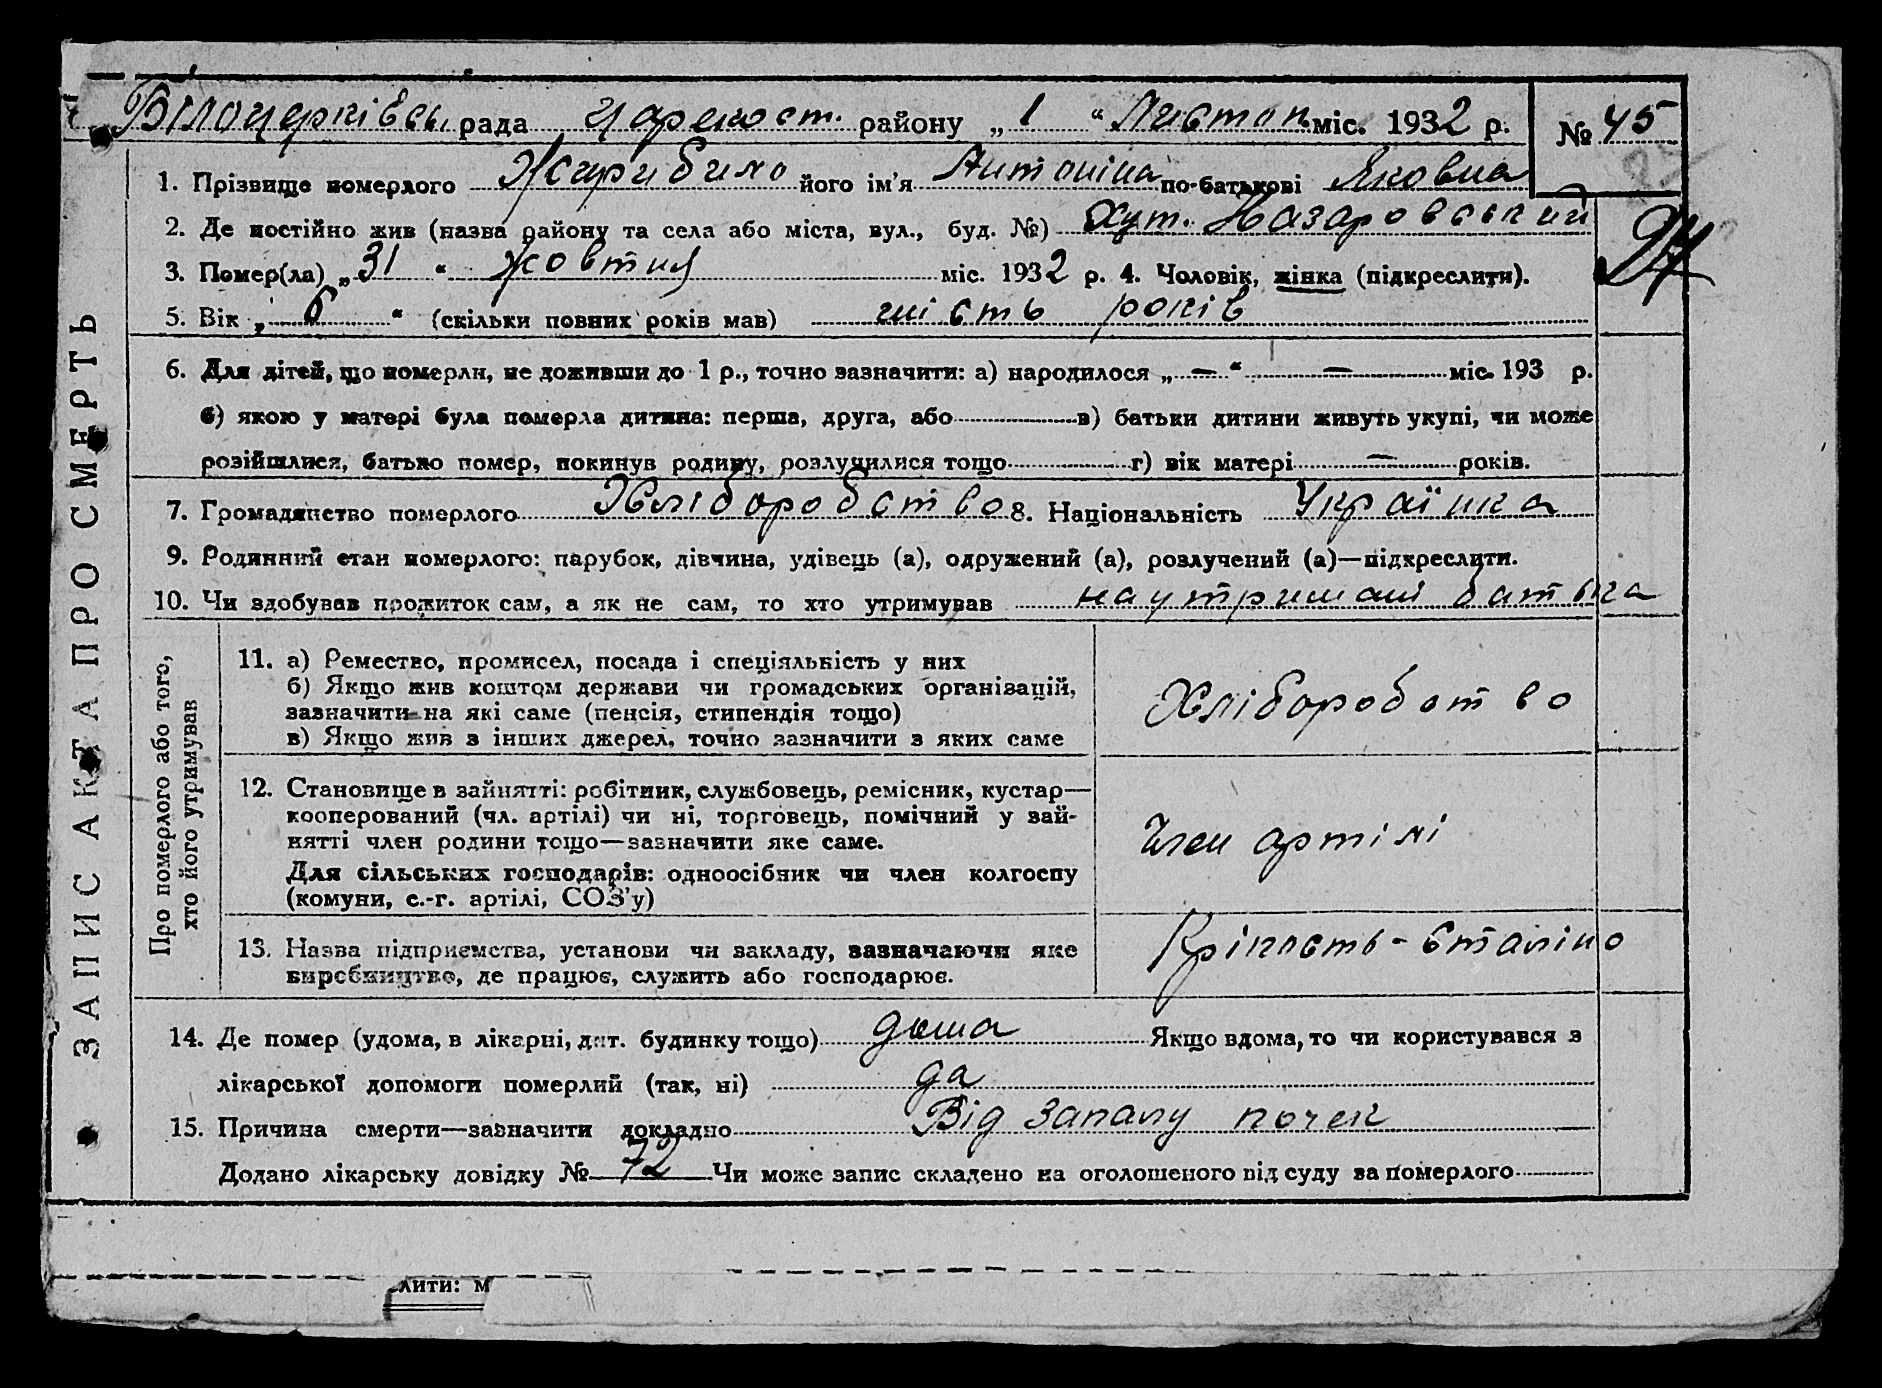 Білоцерківсь. рада Царекост. району „ 1 “ Листоп. міс. 1932 р.
№ 45
1. Прізвище померлого Жирибило його ім’я Антоніна по-батькові Яковна
2. Де постійно жив (назва району та села або міста, вул., буд. №) Хут. Назаровський
94
3. Помер(ла) „ 31 “ жовтня міс. 1932 р. 4. Чоловік, жінка (підкреслити).
5. Вік „ 6 “ (скільки повних років мав) шість років
6. Для дітей, що померли, не доживши до 1 р., точно зазначити: а) народилося „ — “ — міс. 193 р.
б) якою у матері була померла дитина: перша, друга, або в) батьки дитини живуть укупі, чи може
розійшлися, батько помер, покинув родину, розлучилися тощо г) вік матері — років.
7. Громадянство померлого Хліборобство 8. Національність Українка
9. Родинний стан померлого: парубок, дівчина, удівець (а), одружений (а), розлучений (а)—підкреслити.
10. Чи здобував прожиток сам, а як не сам, то хто утримував на утриманні батька
ЗАПИС АКТА ПРО СМЕРТЬ
Про померлого або того,
хто його утримував
11. а) Ремество, промисел, посада і спеціяльність у них
б) Якщо жив коштом держави чи громадських організацій,
зазначити на які саме (пенсія, стипендія тощо)
в) Якщо жив з інших джерел, точно зазначити з яких саме
Хліборобство
12. Становище в зайнятті: робітник, службовець, ремісник, кустар—
кооперований (чл. артілі) чи ні, торговець, помічний у зай-
нятті член родини тощо—зазначити яке саме.
Для сільських господарів: одноосібник чи член колгоспу
(комуни, с.-г. артілі, СОЗ’у)
Член артілі
13. Назва підприємства, установи чи закладу, зазначаючи яке
виробництво, де працює, служить або господарює.
Кріпость-Сталіно
14. Де помер (удома, в лікарні, дит. будинку тощо) дома Якщо вдома, то чи користувався з
лікарської допомоги померлий (так, ні) да
15. Причина смерти—зазначити докладно Від запалу почек
Додано лікарську довідку № 72 Чи може запис складено на оголошеного від суду за померлого
лити: м